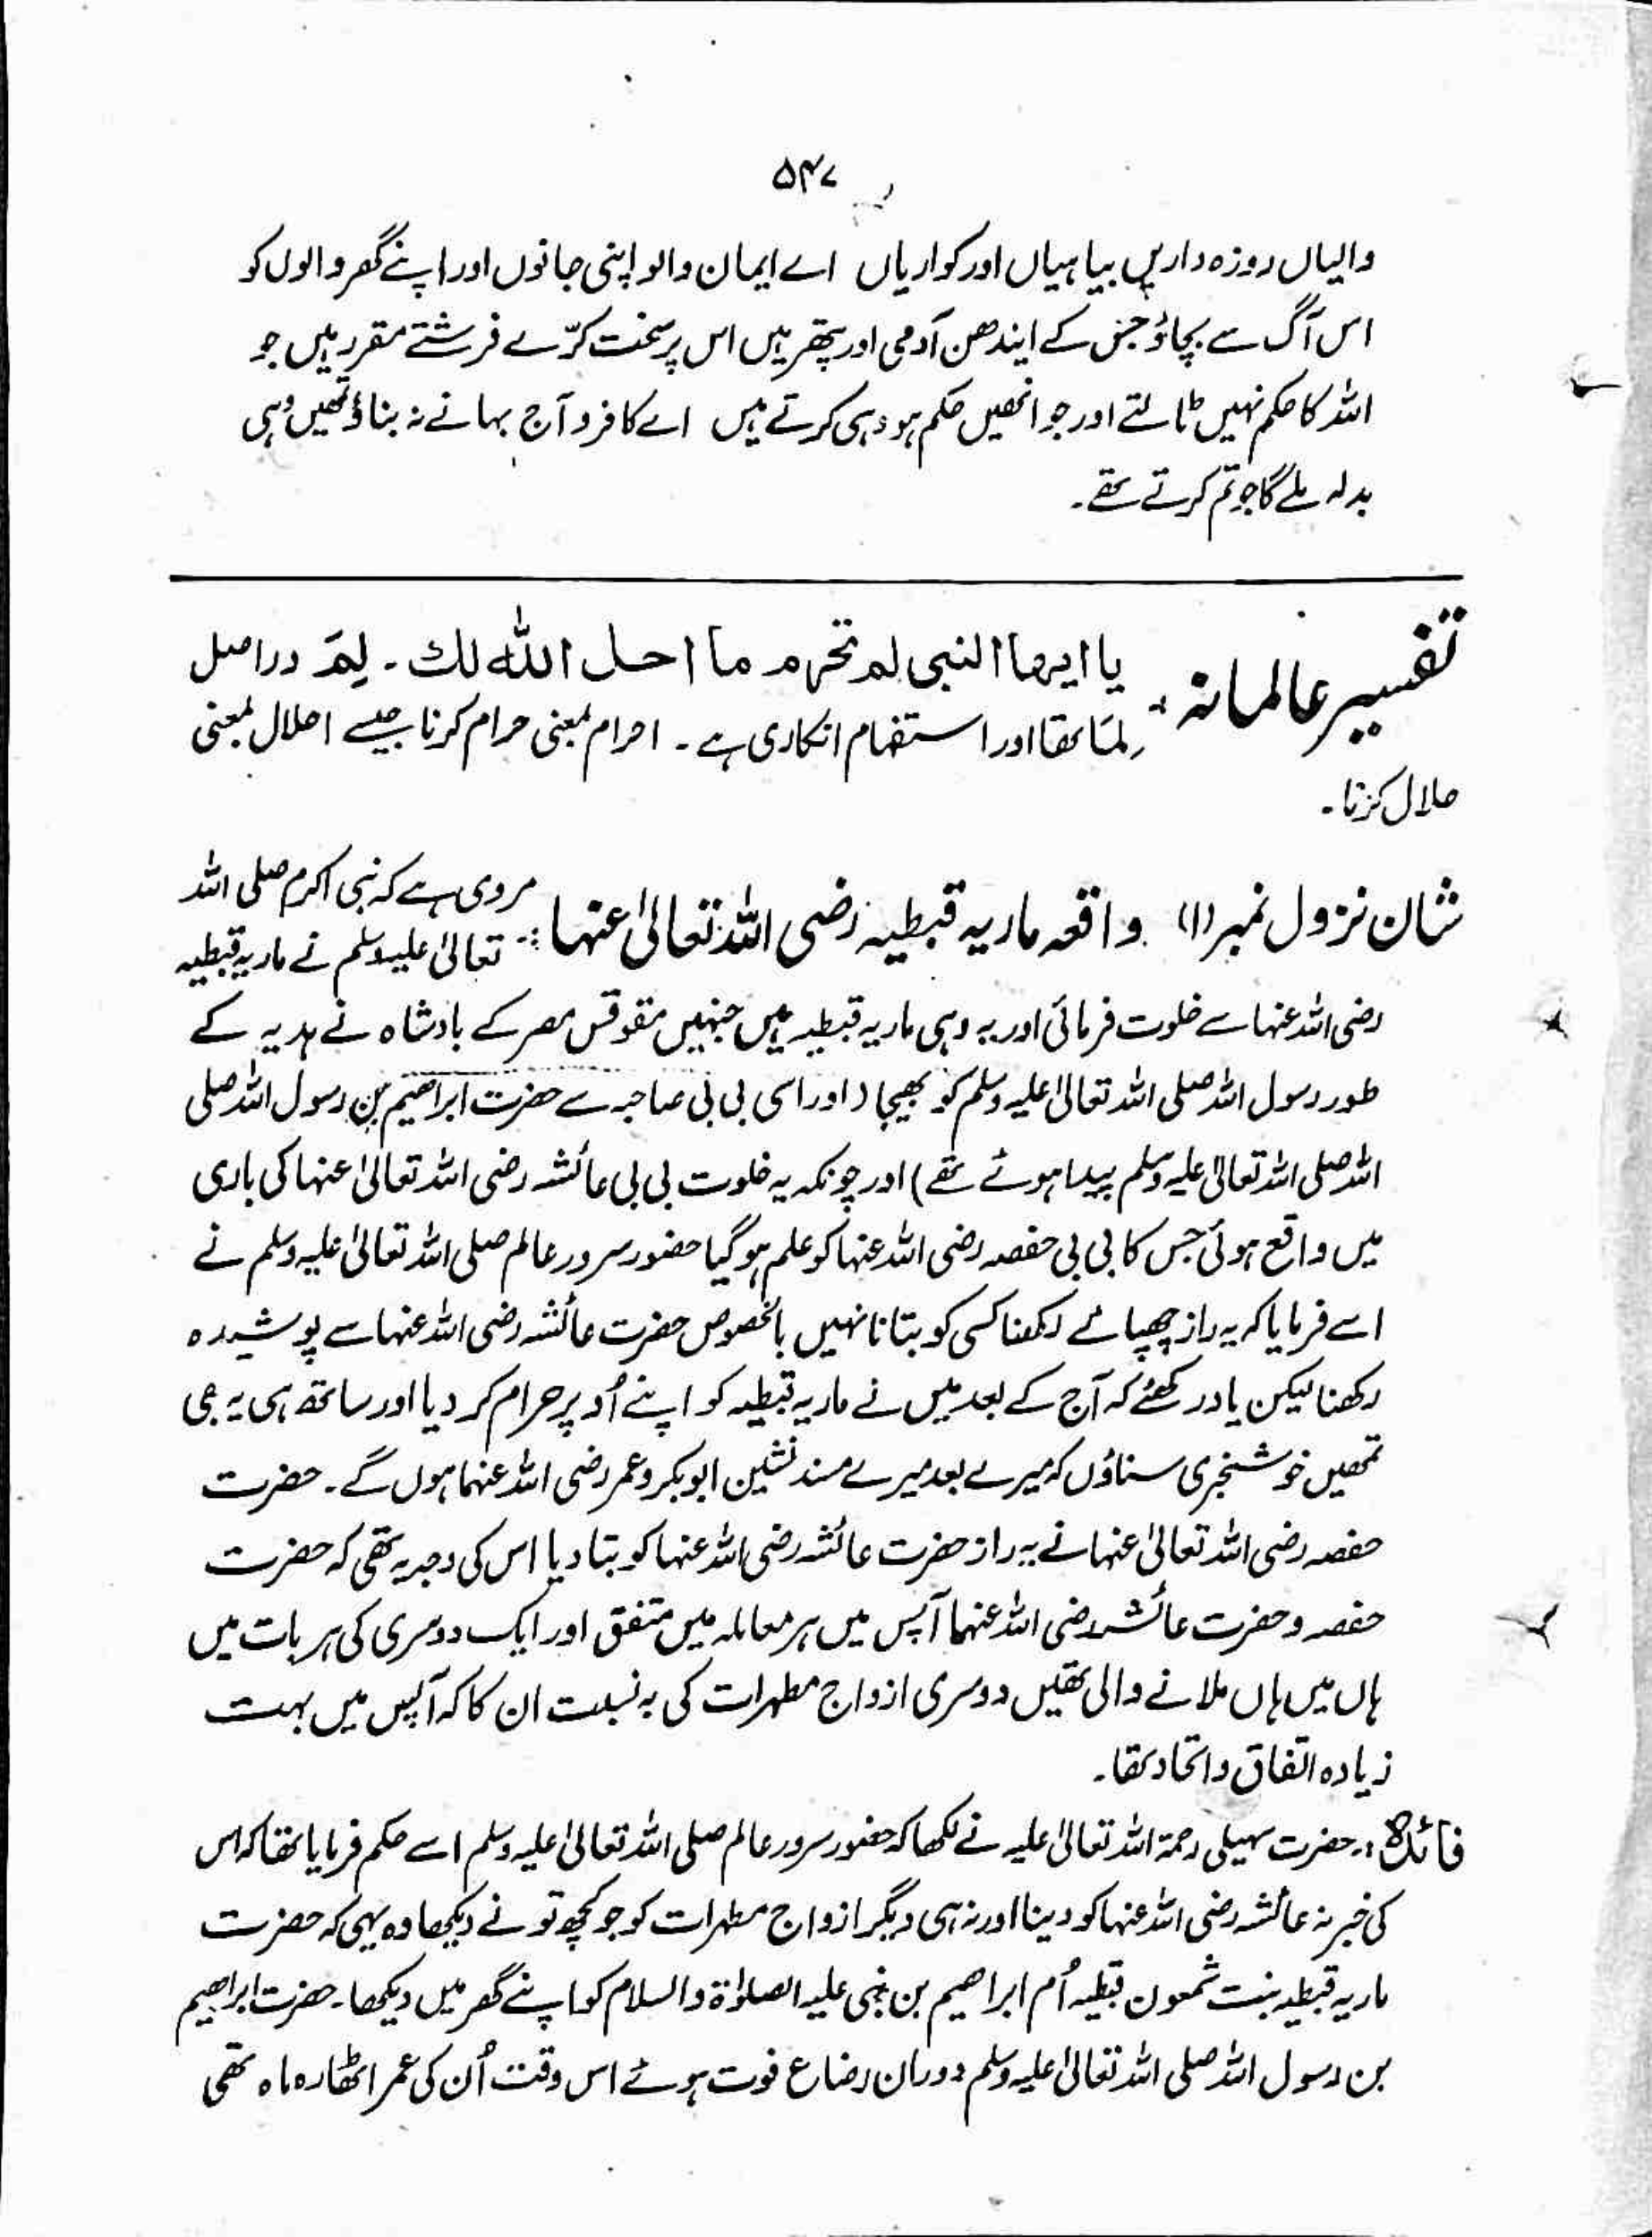 ۵۴۷
والیاں روزہ داریں بیاہیاں اور کواریاں اے ایمان والو اپنی جانوں اور اپنے گھر والوں کو
اس آگ سے بچاؤ جس کے ایندھن آدمی اور پتھر ہیں اس پر سخت کرّے فرشتے مقرر ہیں جو
اللہ کا حکم نہیں ٹالتے اور جو انھیں حکم ہو وہی کرتے ہیں اے کافرو آج بہانے نہ بناؤ تمھیں وہی
بدلہ ملے گا جو تم کرتے تھے۔
تفسیر عالمانہ : یا ایھا النبی لم تحرم ما احل اللہ لك ۔ لِمَ دراصل
لِمَا تھا اور استفہام انکاری ہے ۔ احرام بمعنی حرام کرنا جیسے احلال بمعنی
حلال کرنا ۔
شان نزول نمبر (۱) واقعہ ماریہ قبطیہ رضی اللہ تعالیٰ عنہا :۔ مروی ہے کہ نبی اکرم صلی اللہ
تعالیٰ علیہ وسلم نے ماریہ قبطیہ
رضی اللہ عنہا سے خلوت فرمائی اور یہ وہی ماریہ قبطیہ ہیں جنہیں مقوقس مصر کے بادشاہ نے ہدیہ کے
طور رسول اللہ صلی اللہ تعالیٰ علیہ وسلم کو بھیجا (اور اسی بی بی صاحبہ سے حضرت ابراھیم بن رسول اللہ صلی
اللہ صلی اللہ تعالیٰ علیہ وسلم پیدا ہوئے تھے) اور چونکہ یہ خلوت بی بی عائشہ رضی اللہ تعالیٰ عنہا کی باری
میں واقع ہوئی جس کا بی بی حفصہ رضی اللہ عنہا کو علم ہو گیا حضور سرور عالم صلی اللہ تعالیٰ علیہ وسلم نے
اسے فرمایا کہ یہ راز چھپائے رکھنا کسی کو بتانا نہیں بالخصوص حضرت عائشہ رضی اللہ عنہا سے پوشیدہ
رکھنا لیکن یاد رکھئے کہ آج کے بعد میں نے ماریہ قبطیہ کو اپنے اُوپر حرام کر دیا اور ساتھ ہی یہ بھی
تمھیں خوشخبری سناؤں کہ میرے بعد میرے مسند نشین ابو بکر و عمر رضی اللہ عنہما ہوں گے ۔ حضرت
حفصہ رضی اللہ تعالیٰ عنہا نے یہ راز حضرت عائشہ رضی اللہ عنہا کو بتا دیا اس کی وجہ یہ تھی کہ حضرت
حفصہ و حضرت عائشہ رضی اللہ عنہما آپس میں ہر معاملہ میں متفق اور ایک دوسری کی ہر بات میں
ہاں میں ہاں ملانے والی تھیں دوسری ازواج مطہرات کی بہ نسبت ان کا کہ آپس میں بہت
زیادہ اتفاق و اتحاد تھا۔
فائدہ :۔ حضرت سہیلی رحمۃ اللہ تعالیٰ علیہ نے لکھا کہ حضور سرور عالم صلی اللہ تعالیٰ علیہ وسلم اسے حکم فرمایا تھا کہ اس
کی خبر نہ عائشہ رضی اللہ عنہا کو دینا اور نہ ہی دیگر ازواج مطہرات کو جو کچھ تو نے دیکھا وہ یہی کہ حضرت
ماریہ قبطیہ بنت شمعون قبطیہ اُم ابراھیم بن نبی علیہ الصلوٰۃ والسلام کو اپنے گھر میں دیکھا ۔ حضرت ابراھیم
بن رسول اللہ صلی اللہ تعالیٰ علیہ وسلم دوران رضاع فوت ہوئے اس وقت اُن کی عمر اٹھارہ ماہ تھی